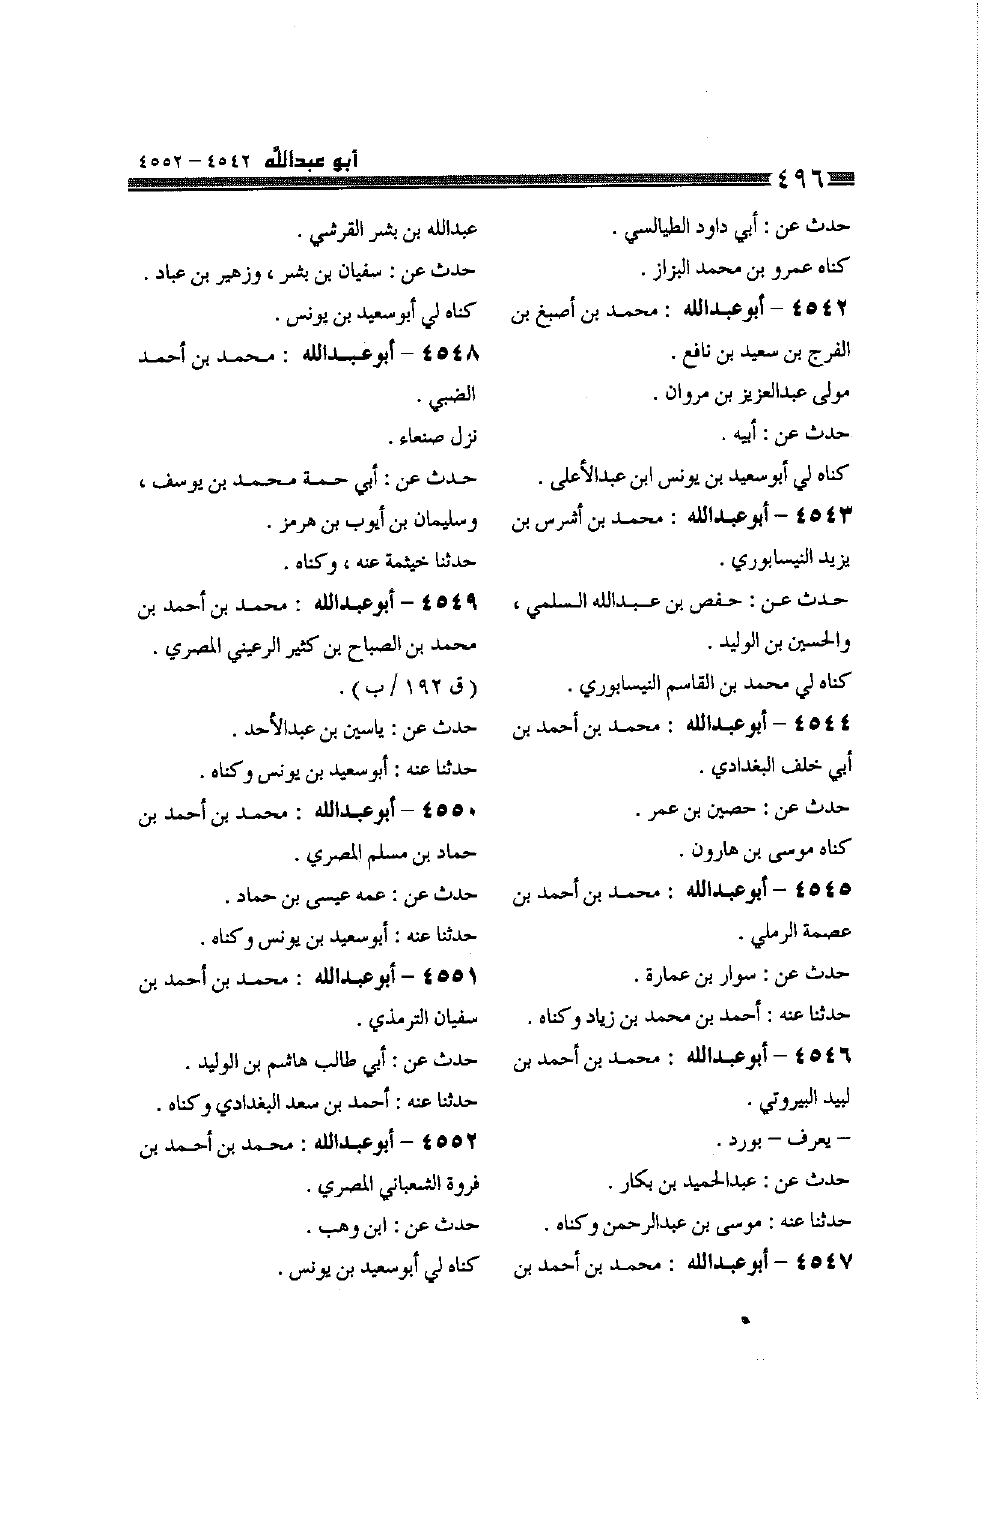 أبو عبدالله ٤٥٤٢ – ٤٥٥٢
٤٩٦
حدث عن : أبي داود الطيالسي .
كناه عمرو بن محمد البزاز .
٤٥٤٢ – أبوعبدالله : محمد بن أصبغ بن
الفرج بن سعيد بن نافع .
مولى عبدالعزيز بن مروان .
حدث عن : أبيه .
كناه لي أبوسعيد بن يونس ابن عبدالأعلى .
٤٥٤٣ – أبوعبدالله : محمد بن أشرس بن
يزيد النيسابوري .
حدث عن : حفص بن عبدالله السلمي ،
والحسين بن الوليد .
كناه لي محمد بن القاسم النيسابوري .
٤٥٤٤ – أبوعبدالله : محمد بن أحمد بن
أبي خلف البغدادي .
حدث عن : حصين بن عمر .
كناه موسى بن هارون .
٤٥٤٥ – أبوعبدالله : محمد بن أحمد بن
عصمة الرملي .
حدث عن : سوار بن عمارة .
حدثنا عنه : أحمد بن محمد بن زياد وكناه .
٤٥٤٦ – أبوعبدالله : محمد بن أحمد بن
لبيد البيروتي .
– يعرف – بورد .
حدث عن : عبدالحميد بن بكار .
حدثنا عنه : موسى بن عبدالرحمن وكناه .
٤٥٤٧ – أبوعبدالله : محمد بن أحمد بن
عبدالله بن بشر القرشي .
حدث عن : سفيان بن بشر ، وزهير بن عباد .
كناه لي أبوسعيد بن يونس .
٤٥٤٨ – أبوعبدالله : محمد بن أحمد
الضبي .
نزل صنعاء .
حدث عن : أبي حمة محمد بن يوسف ،
وسليمان بن أيوب بن هرمز .
حدثنا خيثمة عنه ، وكناه .
٤٥٤٩ – أبوعبدالله : محمد بن أحمد بن
محمد بن الصباح بن كثير الرعيني المصري .
( ق ١٩٢ / ب ) .
حدث عن : ياسين بن عبدالأحد .
حدثنا عنه : أبوسعيد بن يونس وكناه .
٤٥٥٠ – أبوعبدالله : محمد بن أحمد بن
حماد بن مسلم المصري .
حدث عن : عمه عيسى بن حماد .
حدثنا عنه : أبوسعيد بن يونس وكناه .
٤٥٥١ – أبوعبدالله : محمد بن أحمد بن
سفيان الترمذي .
حدث عن : أبي طالب هاشم بن الوليد .
حدثنا عنه : أحمد بن سعد البغدادي وكناه .
٤٥٥٢ – أبوعبدالله : محمد بن أحمد بن
فروة الشعباني المصري .
حدث عن : ابن وهب .
كناه لي أبوسعيد بن يونس .